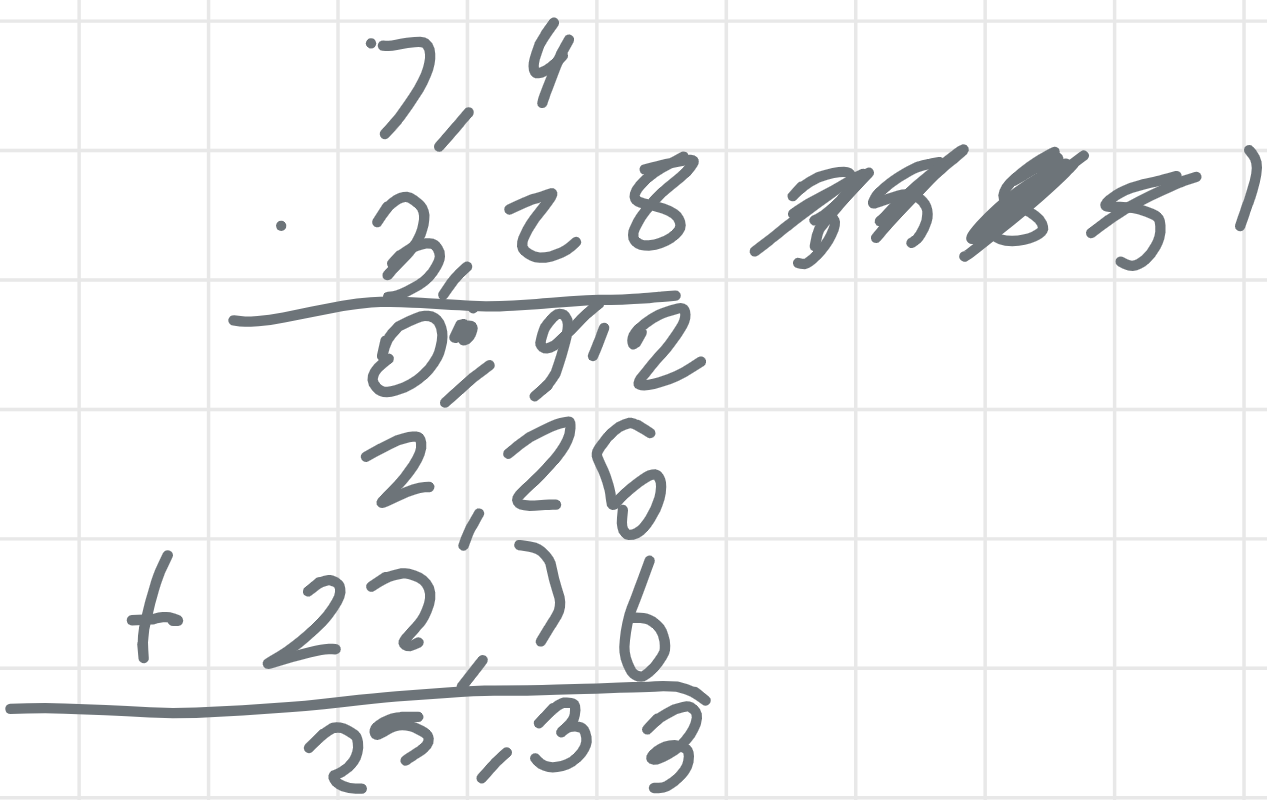 7,4
· 3,28 5 1
0,912
2,26
+ 27,76
25,33